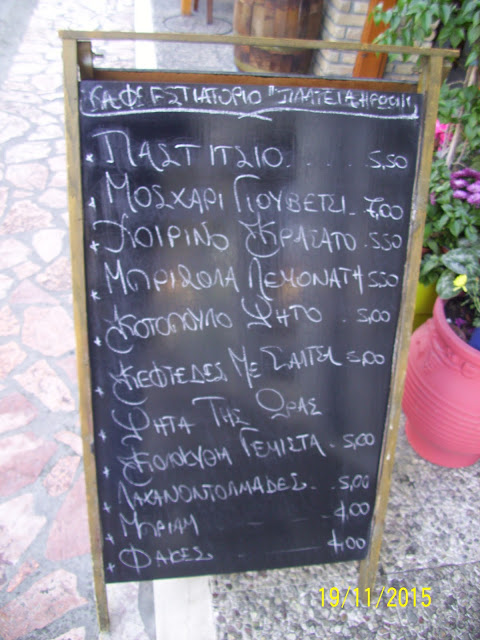 ΚΑΦΕ ΕΣΤΙΑΤΟΡΙΟ "ΠΛΑΤΕΙΑ ΗΡΩΩΝ"
* ΠΑΣΤΙΤΣΙΟ...... 5,50
* ΜΟSΧΑΡΙ ΓΙΟΥΒΕΤSΙ.. 7,00
* ΧΟΙΡΙΝΟ ΚΡΑΣΑΤΟ. 5.50
* ΜΠΡΙΖΟΛΑ ΛΕΜΟΝΑΤΗ 5.50
* ΚΟΤΟΠΟΥΛΟ ΨΗΤΟ . 5,00
* ΚΕΦΤΕΔΕS ΜΕ ΣΑΛΤSΑ 5,00
* ΨΗΤΑ ΤΗΣ ΩΡΑΣ
* ΚΟΛΟΚΥΘΙΑ ΓΕΜΙΣΤΑ. 5,00
* ΛΑΧΑΝΟΝΤΟΛΜΑΔΕΣ.. 5,00
* ΜΠΡΙΑΜ 4,00
* ΦΑΚΕΣ 4,00
19/11/2015